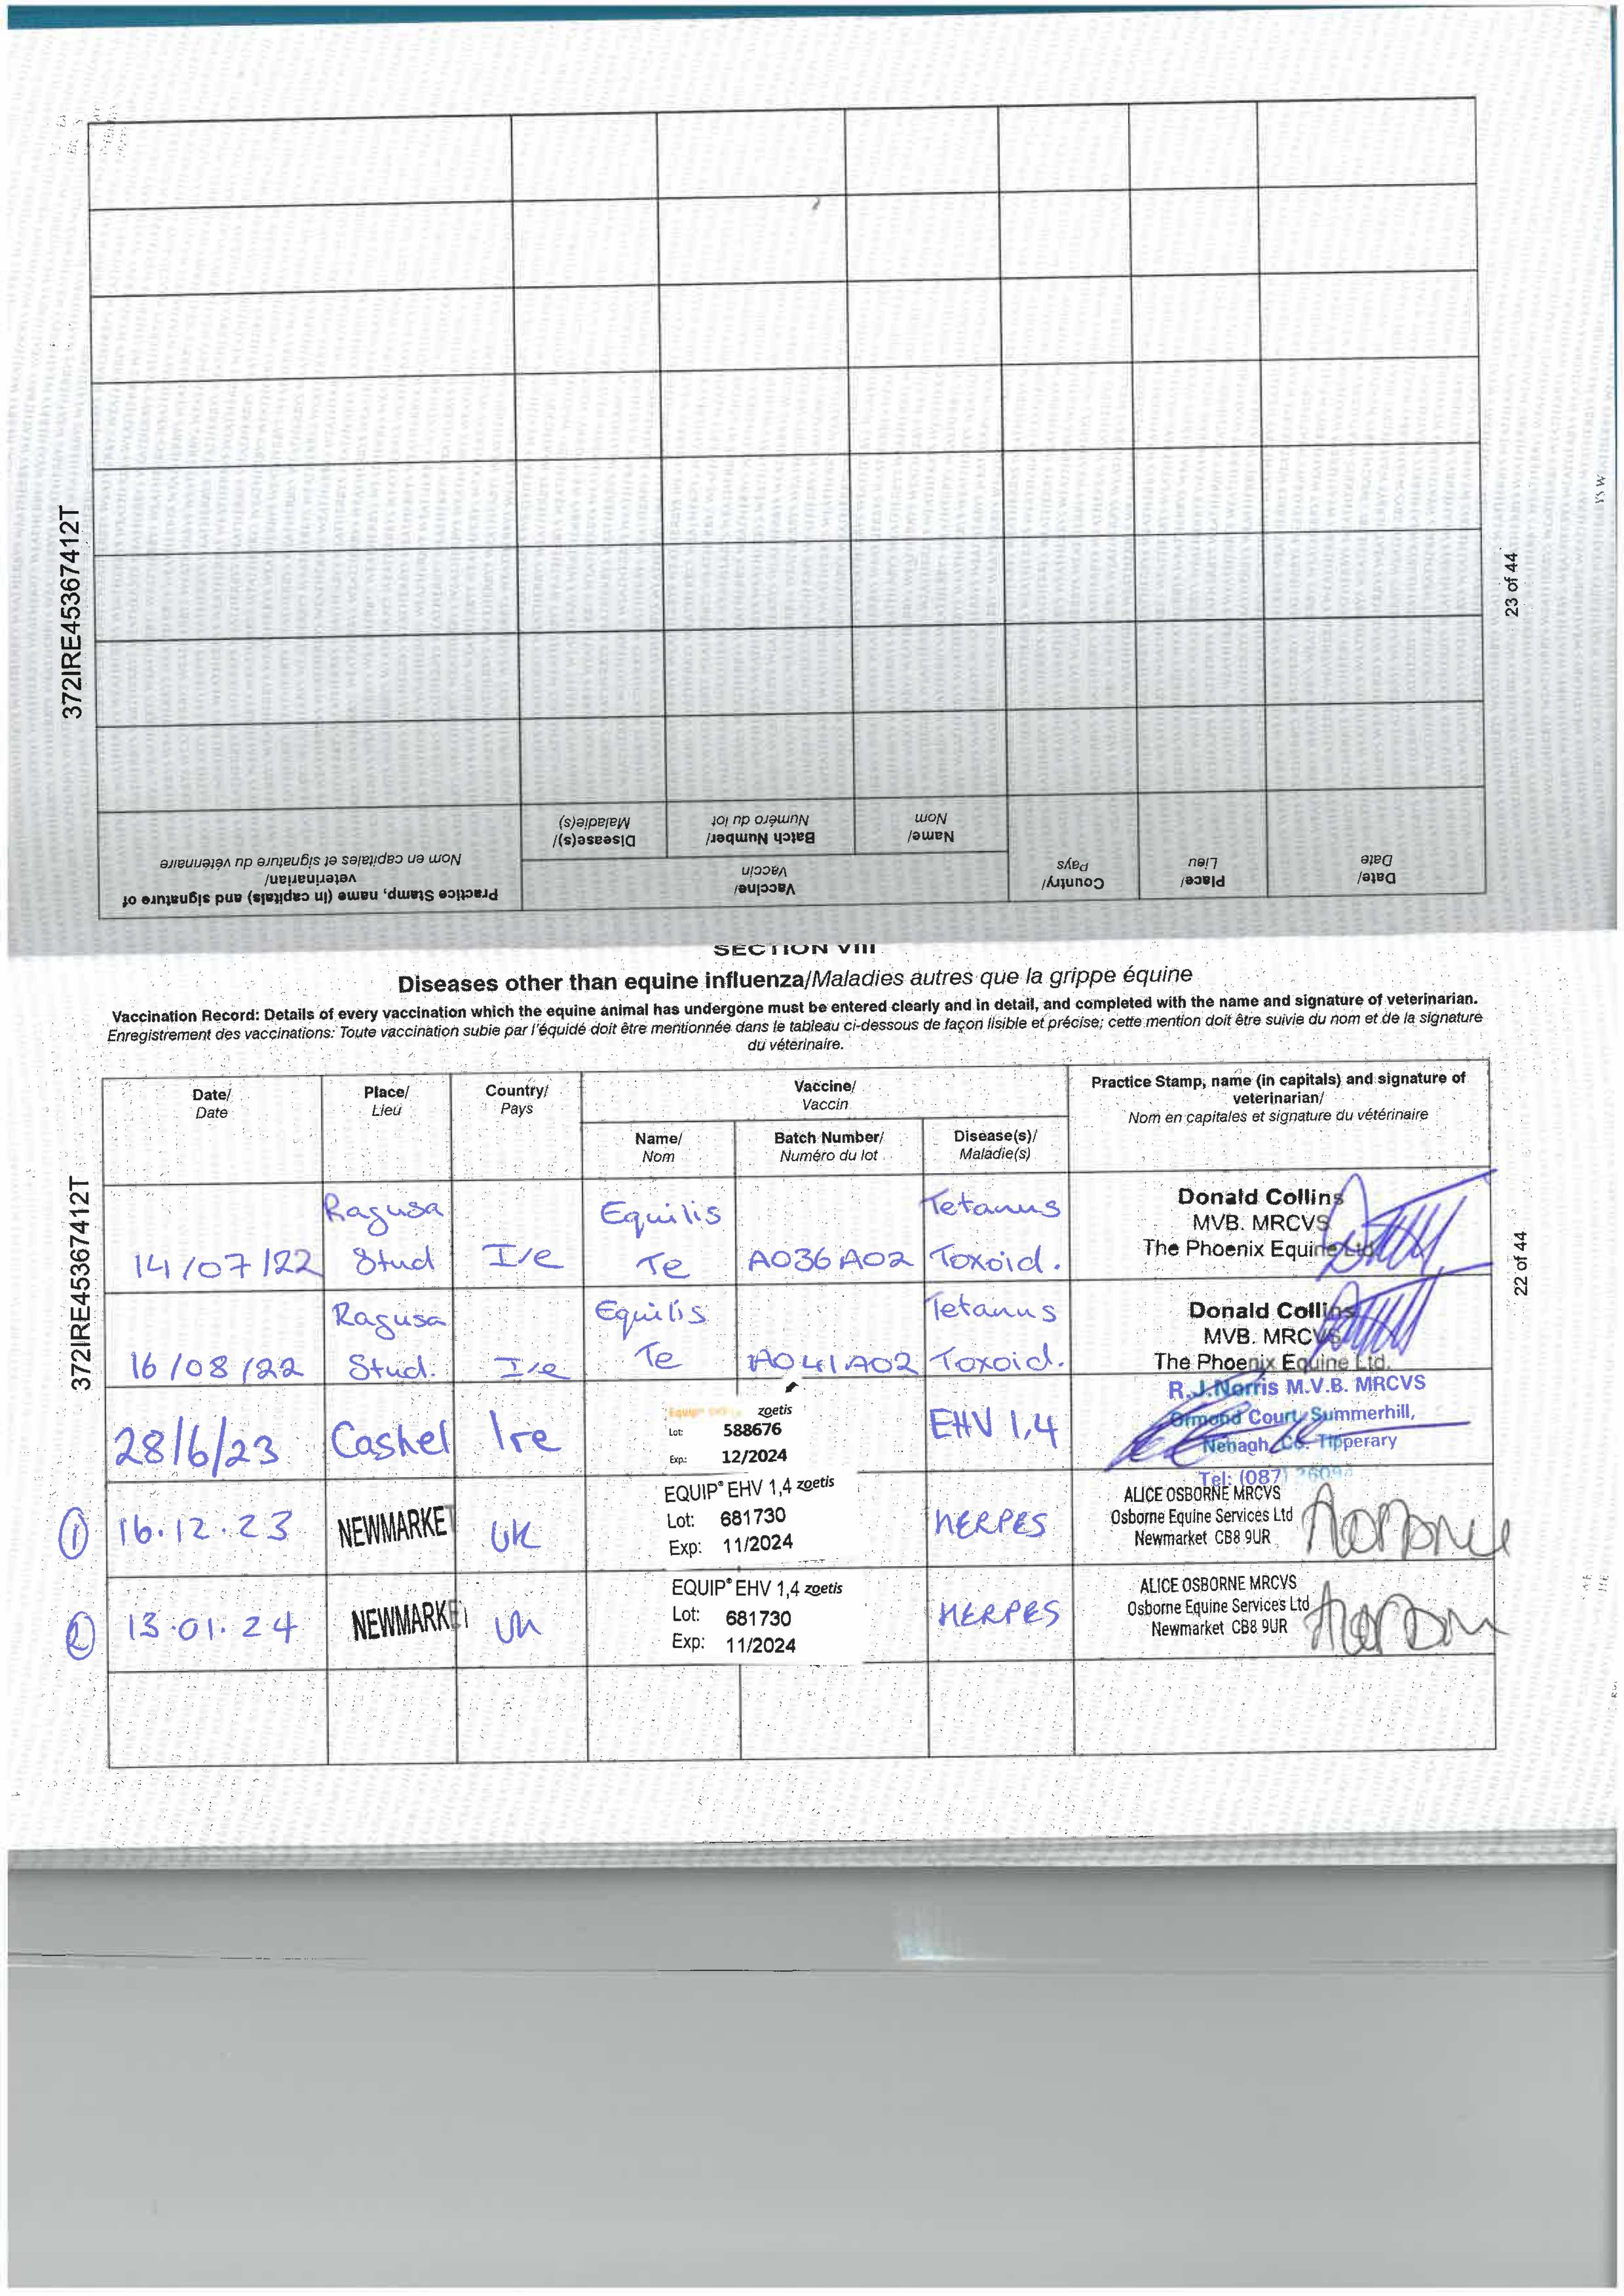 372IRE45367412T
23 of 44
Date/
Date
Place/
Lieu
Country/
Pays
Vaccine/
Vaccin
Name/
Nom
Batch Number/
Numéro du lot
Disease(s)/
Maladie(s)
Practice Stamp, name (in capitals) and signature of
veterinarian/
Nom en capitales et signature du vétérinaire
SECTION VIII
Diseases other than equine influenza/Maladies autres que la grippe équine
Vaccination Record: Details of every vaccination which the equine animal has undergone must be entered clearly and in detail, and completed with the name and signature of veterinarian.
Enregistrement des vaccinations: Toute vaccination subie par l'équidé doit être mentionnée dans le tableau ci-dessous de façon lisible et précise; cette mention doit être suivie du nom et de la signature
du véterinaire.
372IRE45367412T
22 of 44
Date/
Date
Place/
Lieu
Country/
Pays
Vaccine/
Vaccin
Practice Stamp, name (in capitals) and signature of
veterinarian/
Nom en capitales et signature du vétérinaire
Name/
Nom
Batch Number/
Numéro du lot
Disease(s)/
Maladie(s)
14/07/22
Ragusa
Stud
Ire
Equilis
Te
A036A02
Tetanus
Toxoid.
Donald Collins
MVB. MRCVS
The Phoenix Equine Ltd.
16/08/22
Ragusa
Stud.
Ire
Equilis
Te
A041A02
Tetanus
Toxoid.
Donald Collins
MVB. MRCVS
The Phoenix Equine Ltd.
28/6/23
Cashel
Ire
zoetis
Lot: 588676
Exp.: 12/2024
EHV 1,4
R.J.Norris M.V.B. MRCVS
Ormond Court, Summerhill,
Nenagh, Co. Tipperary
Tel: (087)
1
16.12.23
NEWMARKET
UK
EQUIP® EHV 1,4 zoetis
Lot: 681730
Exp: 11/2024
HERPES
ALICE OSBORNE MRCVS
Osborne Equine Services Ltd
Newmarket CB8 9UR
2
13.01.24
NEWMARKET
UK
EQUIP® EHV 1,4 zoetis
Lot: 681730
Exp: 11/2024
HERPES
ALICE OSBORNE MRCVS
Osborne Equine Services Ltd
Newmarket CB8 9UR